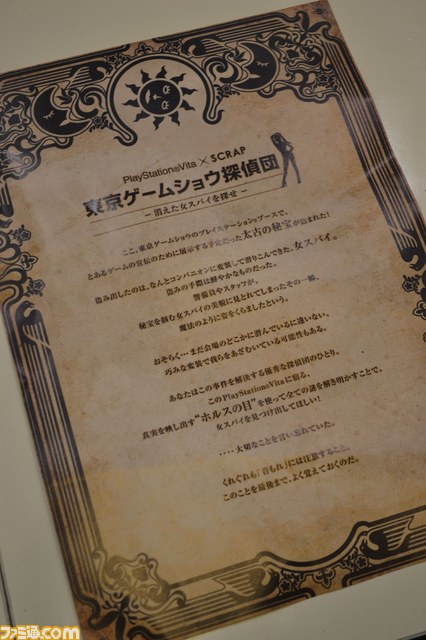 PlayStation®Vita × SCRAP
東京ゲームショウ探偵団
－消えた女スパイを探せ－
ここ、東京ゲームショウのプレイステーション®ブースで、
とあるゲームの宣伝のために展示する予定だった太古の秘宝が盗まれた！
盗み出したのは、なんとコンパニオンに変装して潜りこんできた、女スパイ。
盗みの手際は鮮やかなものだった。
警備員やスタッフが、
秘宝を掴む女スパイの美貌に見とれてしまったその一瞬、
魔法のように姿をくらましたという。
おそらく・・・まだ会場のどこかに潜んでいるに違いない。
巧みな変装で我らをあざむいている可能性もある。
あなたはこの事件を解決する優秀な探偵団のひとり。
このPlayStation®Vitaに宿る、
真実を映し出す“ホルスの目”を使って全ての謎を解き明かすことで、
女スパイを見つけ出してほしい！
・・・・大切なことを言い忘れていた。
くれぐれも「音もれ」には注意すること。
このことを最後まで、よく覚えておくのだ。
ファミ通.com